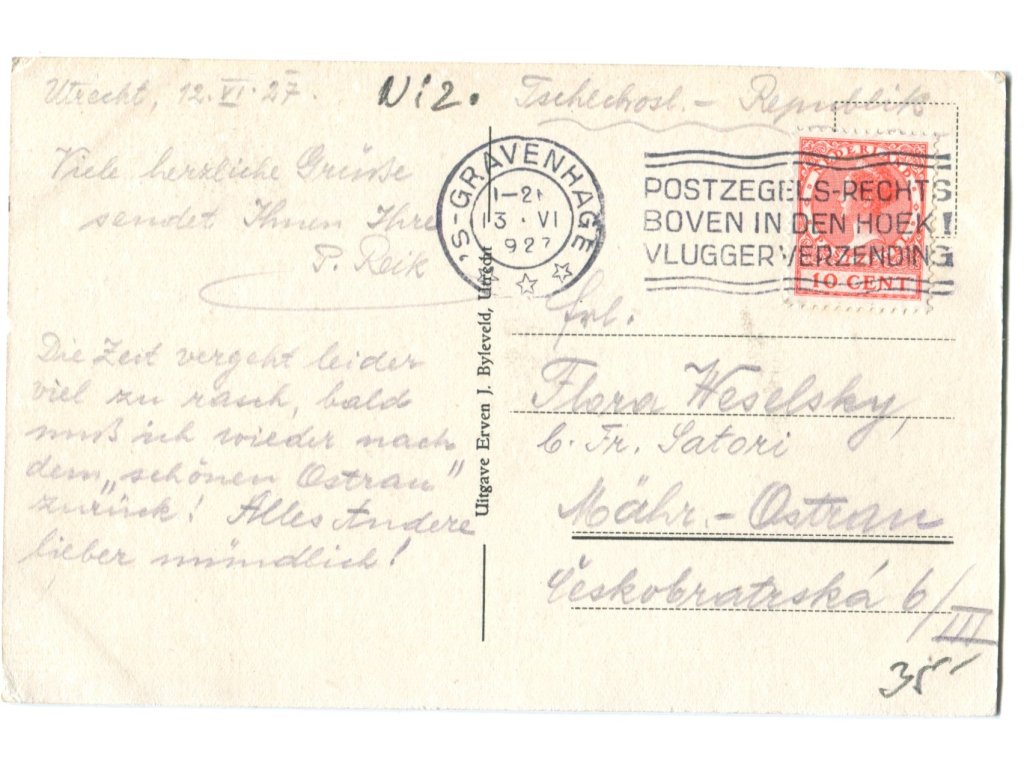 Utrecht, 12.VI.27.
Viele herzliche Grüße
sendet Ihnen Ihre
P. Reik
Die Zeit vergeht leider
viel zu rasch, bald
muß ich wieder nach
dem „schönen Ostrau"
zurück! Alles Andere
lieber mündlich!
Niz.
Uitgave Erven J. Byleveld, Utrecht
Tschechosl. - Republik
'S-GRAVENHAGE
13 . VI
1927
POSTZEGELS-RECHTS
BOVEN IN DEN HOEK!
VLUGGER VERZENDING
NEDERLAND
10 CENT
Frl.
Flora Weselsky,
b. Fr. Satori
Mähr. - Ostrau
Českobratrská 6/III
35